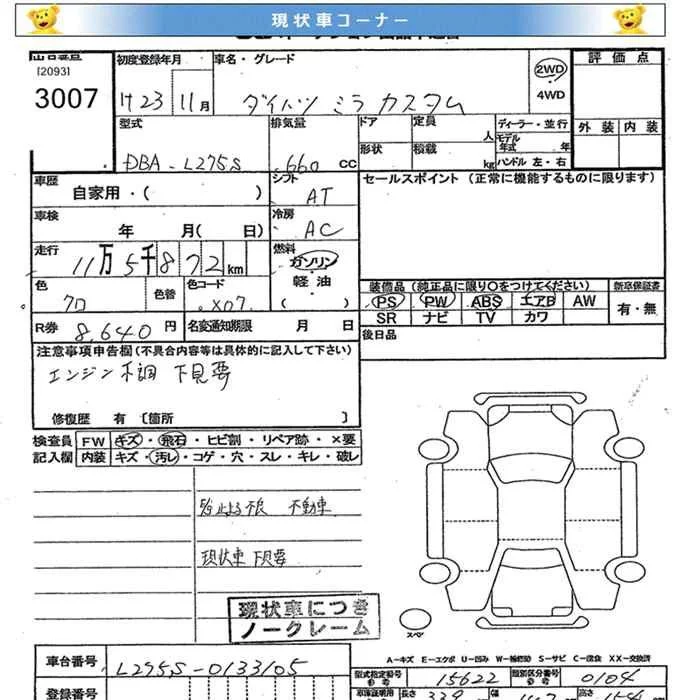 現状車コーナー
[2093]
3007
初度登録年月
車名・グレード
H23 11月
ダイハツ ミラ カスタム
2WD
4WD
評価点
外装 内装
型式
DBA-L275S
排気量
660 CC
ドア
定員
人
ディーラー・並行
モデル年式 年
形状
積載
kg
ハンドル 左・右
車歴
自家用・( )
シフト
AT
セールスポイント (正常に機能するものに限ります)
車検
年 月( 日)
冷房
AC
走行
11万5千872km
燃料
ガソリン
軽油
( )
色
クロ
色替
色コード
X07
装備品(純正品に限り○をつけてください)
新車保証書
PS PW ABS エアB AW
有・無
SR ナビ TV カワ
R券
8,640円
名変通知期限 月 日
後日品
注意事項申告欄(不具合内容等は具体的に記入して下さい)
エンジン不調 下見要
修復歴 有 〔箇所 〕
検査員
記入欄
FW キズ・飛石・ヒビ割・リペア跡・×要
内装 キズ・汚レ・コゲ・穴・スレ・キレ・破レ
不動車
現状車 下見要
現状車につき
ノークレーム
スペア
A-キズ E-エクボ U-凹み W-補修跡 S-サビ C-腐食 XX-交換済
車台番号
L275S-0133105
型式指定番号
15622
類別区分番号
0104
登録番号
長さ
339
幅
高さ